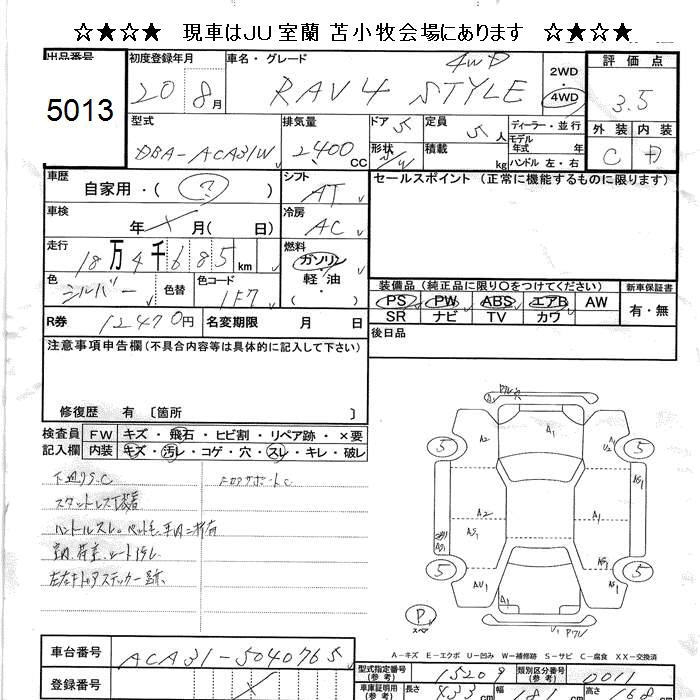 ☆★☆★ 現車はJU室蘭 苫小牧会場にあります ☆★☆★
出品番号 初度登録年月 車名・グレード 評価点
5013
20 8月 RAV4 STYLE 4WD
2WD・4WD 3.5
型式 排気量 ドア 定員 ディーラー・並行 外装 内装
DBA-ACA31W 2400CC 5 5人
形状 S/W 積載 kg
モデル年式 年
ハンドル 左・右
C D
車歴 シフト セールスポイント (正常に機能するものに限ります)
自家用・( ? ) AT
車検 冷房
年 月( 日) AC
走行 燃料
18万4千685km ガソリン
軽・油
( )
色 色替 色コード
シルバー 1F7
装備品 (純正品に限り○をつけてください) 新車保証書
PS PW ABS エアB AW 有・無
SR ナビ TV カワ
R券 12470円 名変期限 月 日 後日品
注意事項申告欄(不具合内容等は具体的に記入して下さい)
修復歴 有 〔箇所 〕
検査員 FW キズ・飛石・ヒビ割・リペア跡・×要
記入欄 内装 キズ・汚レ・コゲ・穴・スレ・キレ・破レ
下廻りS.C
フロアサポートC
スタットレス装着
ハンドルスレ。ペット毛
室内、荷室、シート汚レ
左右ドアステッカー跡
A2 A1 U2 AS1
A2 A1
AS1 A1
AU1 A1 AS1
5 5 5 5
P スペア
A-キズ E-エクボ U-凹み W-補修跡 S-サビ C-腐食 XX-交換済
車台番号 ACA31-5040765
登録番号
型式指定番号(参考) 15209 類別区分番号(参考) 0011
車庫証明用(参考) 長さ 433cm 幅 181cm 高さ 168cm